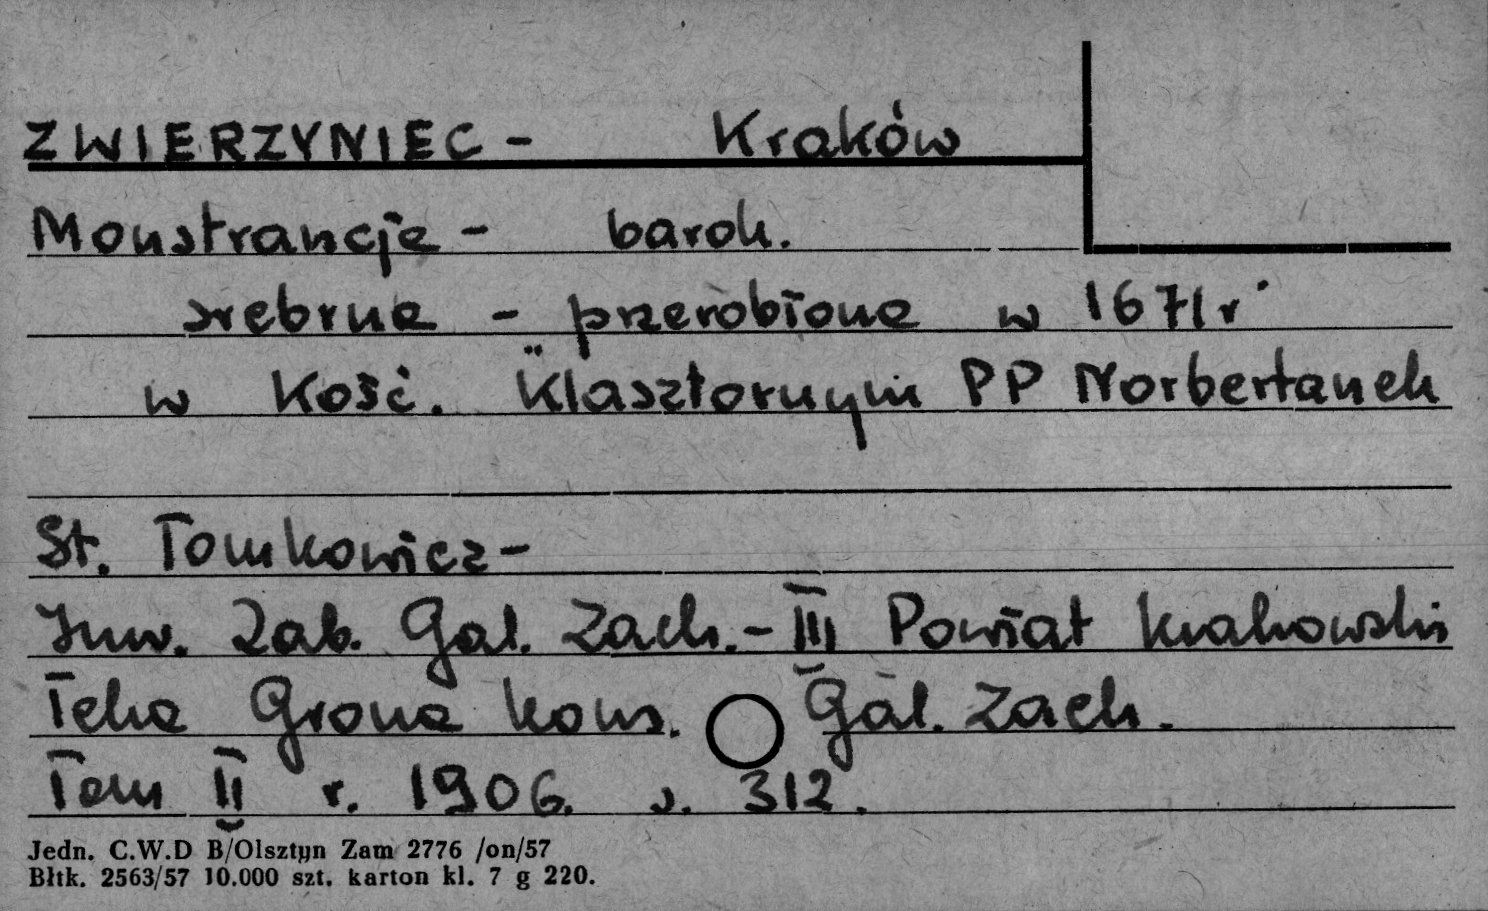 ZWIERZYNIEC - Kraków
Monstrancja - barok.
srebrna - przerobiona w 1671 r.
w Kość. Klasztornym PP Norbertanek
St. Tomkowicz -
Inw. Zab. Gal. Zach. - III Powiat krakowski
Teka Grona kons. Gal. Zach.
Tom II r. 1906. s. 312.
Jedn. C.W.D B/Olsztyn Zam 2776 /on/57
Błtk. 2563/57 10.000 szt. karton kl. 7 g 220.